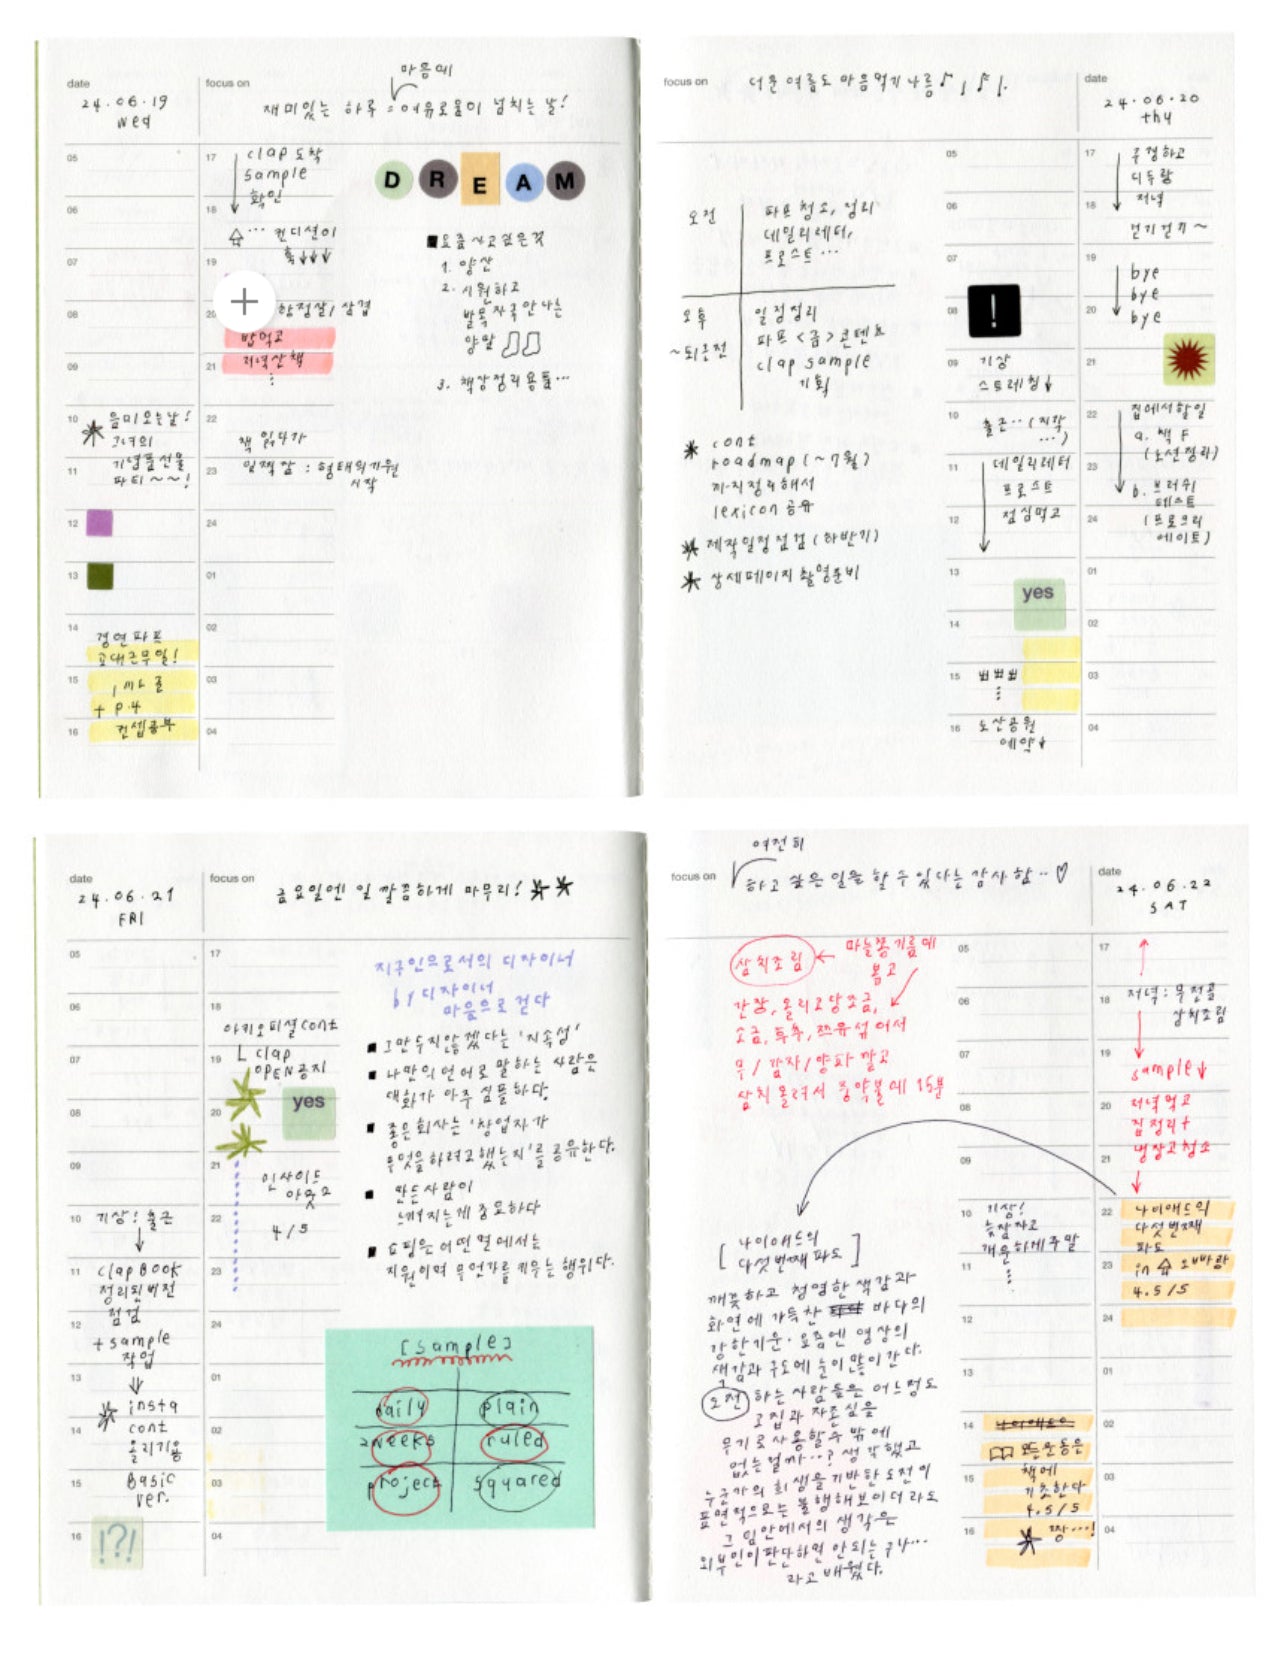 date
24.06.19
Wed
focus on
마음에
재미있는 하루 = 여유로움이 넘치는 날!
05
06
07
08
09
10
음미오는날!
그녀의
11
기념품선물
파티~~!
12
13
14
경연파프
교대근무일!
15
+ p.4
16
컨셉공부
17
clap 도착
sample
확인
18
… 컨디션이
훅↓↓↓
19
20
항정살/삼겹
밥먹고
21
저녁산책
⋮
22
책 읽다가
23
일찍잠 : 형태의기원
시작
24
01
02
03
04
DREAM
■ 요즘 사고싶은것
1. 양산
2. 시원하고
발목 자국 안나는
양말
3. 책상정리용품…
focus on
더운 여름도 마음먹기 나름♪
date
24.06.20
thu
오전
파프 청소, 정리
데일리레터,
프로스트…
오후
~퇴근전
일정정리
파프 <금> 콘텐츠
clap sample
기획
cont
roadmap (~7월)
까지정리해서
lexicon 공유
제작일정점검 (하반기)
상세페이지 촬영준비
05
06
07
08
!
09
기상
스트레칭↓
10
출근··(지각
…)
11
데일리레터
프로스트
12
점심먹고
13
yes
14
15
뾰뾰뾰
⋮
16
도산공원
예약↓
17
디두랑
18
저녁
걷기걷기~
19
bye
bye
20
bye
21
22
집에서할일
a. 책 F
(노션정리)
23
b. 브러쉬
테스트
24
(프로크리
에이트)
01
02
03
04
date
24.06.21
FRI
focus on
금요일엔 일 깔끔하게 마무리!
05
06
07
08
09
10
기상! 출근
↓
11
clap BOOK
정리된버전
점검
12
+ sample
작업
13
insta
14
cont
올리기용
15
Basic
ver.
16
!?!
17
18
아키오피셜cont
19
clap
OPEN공지
20
yes
21
인사이드
아웃2
22
4/5
23
24
01
02
03
04
지구인으로서의 디자이너
by 디자이너
마음으로 걷다
■ 그만두지않겠다는 '지속성'
■ 나만의언어로 말하는 사람은
대화가 아주 심플하다.
■ 좋은회사는 '창업자가
무엇을하려고했는지'를 공유한다.
■ 만든사람이
느껴지는게 중요하다
■ 쇼핑은 어떤 면에서는
지원이며 무언가를 키우는 행위다.
[sample]
daily
plain
2weeks
ruled
project
squared
focus on
여전히
하고 싶은 일을 할 수 있다는 감사함··♡
date
24.06.22
SAT
삼치조림
마늘쫑기름에
볶고
간장, 올리고당조금,
소금, 후추, 쯔유섞어서
무/감자/양파 깔고
삼치 올려서 중약불에 15분
[나이애드의
다섯번째 파도]
깨끗하고 청명한 색감과
화면에 가득찬 바다의
강한기운. 요즘엔 영상의
색감과 구도에 눈이많이간다.
도전 하는 사람들은 어느정도
고집과 자존심을
무기로 사용할수 밖에
없는걸까…? 생각했고
누군가의 희생을 기반한 도전이
표면적으로는 불행해보이더라도
그 팀안에서의 생각은
외부인이판단하면 안되는구나…
라고 배웠다.
05
06
07
08
09
10
기상!
늦잠자고
개운하게주말
11
⋮
12
13
14
모든운동은
책에
15
기초한다
4.5/5
16
짱…!
17
18
저녁: 무전골
삼치조림
19
sample↓
20
저녁먹고
집정리+
21
냉장고청소
22
나이애드의
다섯번째
파도
23
4.5/5
24
01
02
03
04